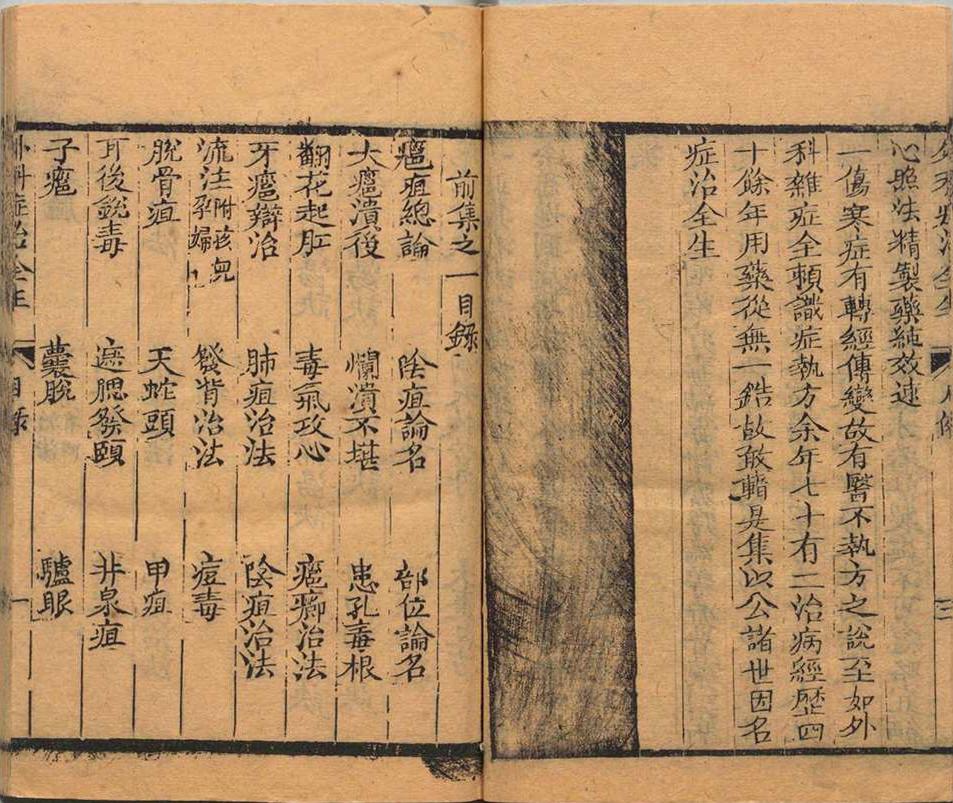 心照法精製藥純效速
一傷寒症有轉經傳變故有醫不執方之說至如外
科雜症全賴識症執方余年七十有二治病經歷四
十餘年用藥從無一錯故敢輯是集以公諸世因名
症治全生
前集之一目錄
癰疽總論 陰疽論名 部位論名
大癰潰後 爛潰不堪 患孔毒根
翻花起肛 毒氣攻心 癰癤治法
牙癰辯治 肺疽治法 陰疽治法
流注附孩兒孕婦 發背治法 痘毒
脫骨疽 天蛇頭 甲疽
耳後銳毒 遮腮發頤 井泉疽
子癰 囊脫 驢眼
外科症治全生 目錄 一